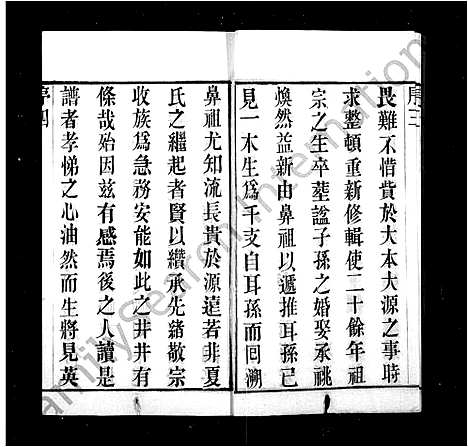 序三
畏難不惜貲於大本大源之事時
求整頓重新修輯使二十餘年祖
宗之生卒塟諡子孫之婚娶承祧
煥然益新由鼻祖以遞推耳孫已
見一木生爲千支自耳孫而囘溯
鼻祖尤知流長貴於源遠若非夏
氏之繼起者賢以纘承先緒敬宗
收族爲急務安能如此之井井有
條哉始因玆有感焉後之人讀是
譜者孝悌之心油然而生將見英
序四
FamilySearch International